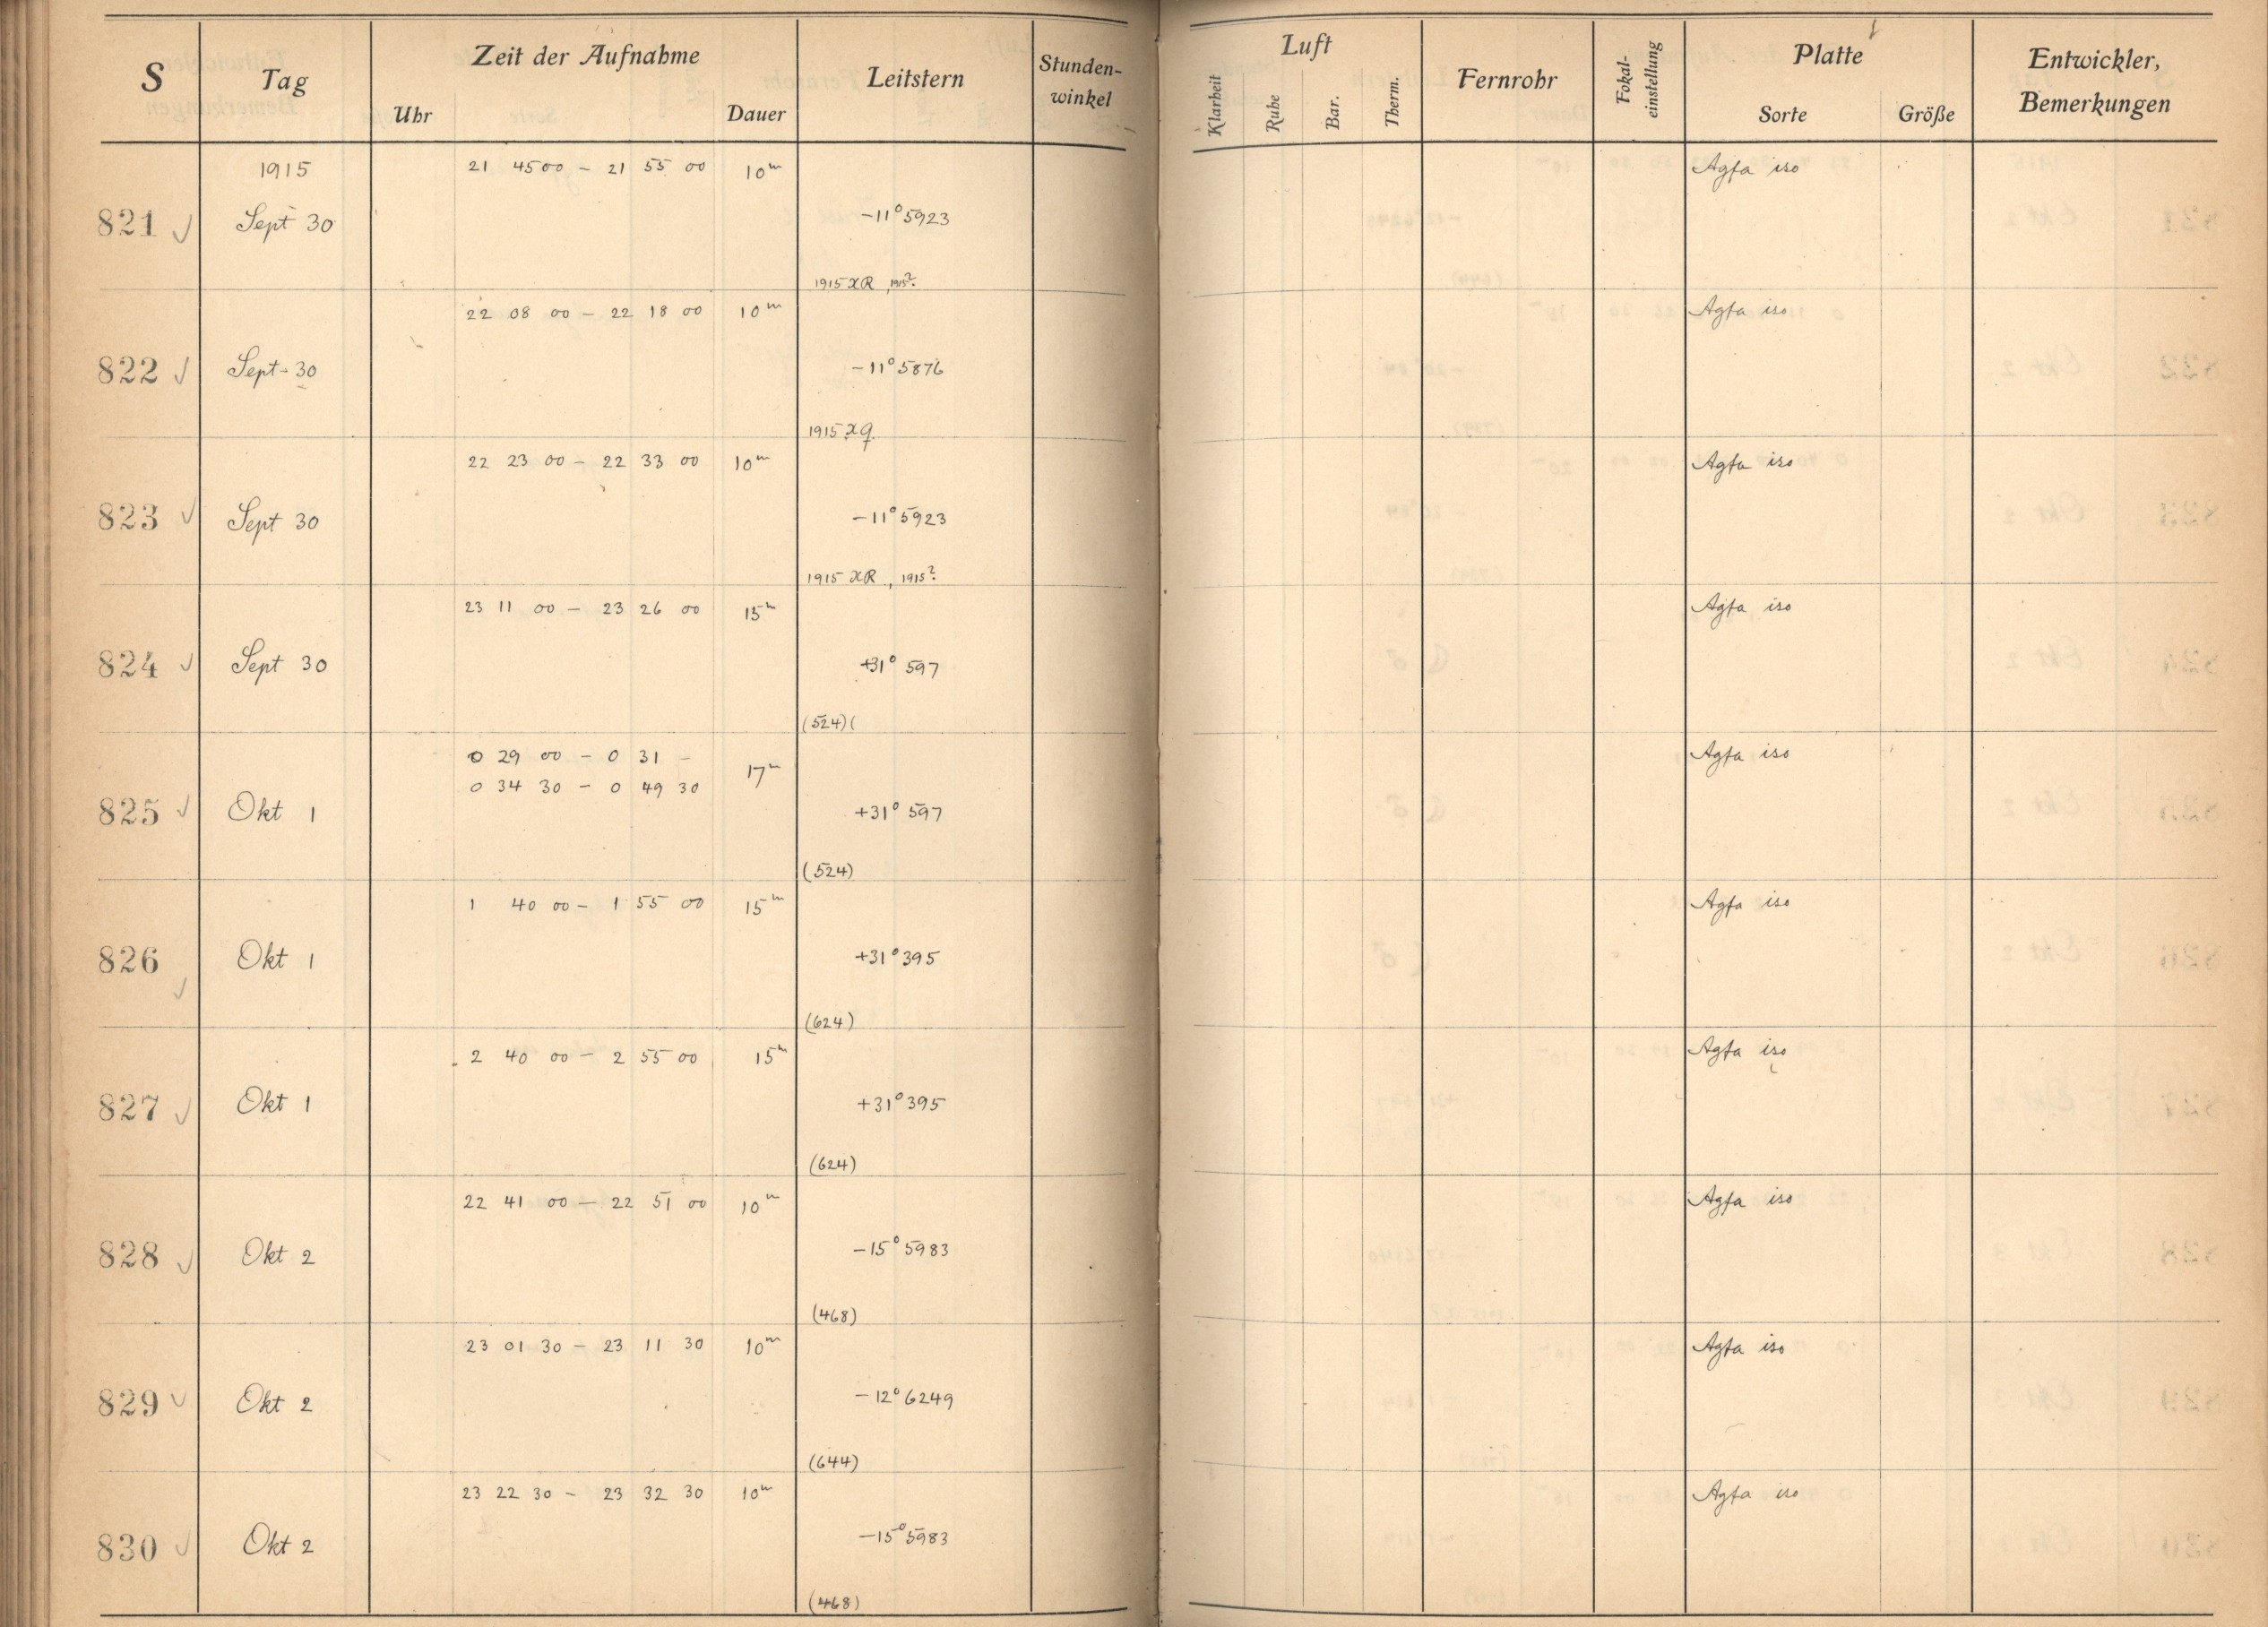 S Tag Zeit der Aufnahme Leitstern Stunden-winkel Luft Fernrohr Fokal-einstellung Platte Entwickler, Bemerkungen
Uhr Dauer Klarheit Ruhe Bar. Therm. Sorte Größe
1915 21 45 00 – 21 55 00 10m Agfa iso
821 Sept 30 –11° 5923
1915 XR, 1915?
22 08 00 – 22 18 00 10m Agfa iso
822 Sept 30 –11° 5876
1915
22 23 00 – 22 33 00 10m Agfa iso
823 Sept 30 –11° 5923
1915 XR, 1915?
23 11 00 – 23 26 00 15m Agfa iso
824 Sept 30 +31° 597
(524) (
0 29 00 – 0 31 – Agfa iso
0 34 30 – 0 49 30 17m
825 Okt 1 +31° 597
(524)
1 40 00 – 1 55 00 15m Agfa iso
826 Okt 1 +31° 395
(624)
2 40 00 – 2 55 00 15m Agfa iso
827 Okt 1 +31° 395
(624)
22 41 00 – 22 51 00 10m Agfa iso
828 Okt 2 –15° 5983
(468)
23 01 30 – 23 11 30 10m Agfa iso
829 Okt 2 –12° 6249
(644)
23 22 30 – 23 32 30 10m Agfa iso
830 Okt 2 –15° 5983
(468)